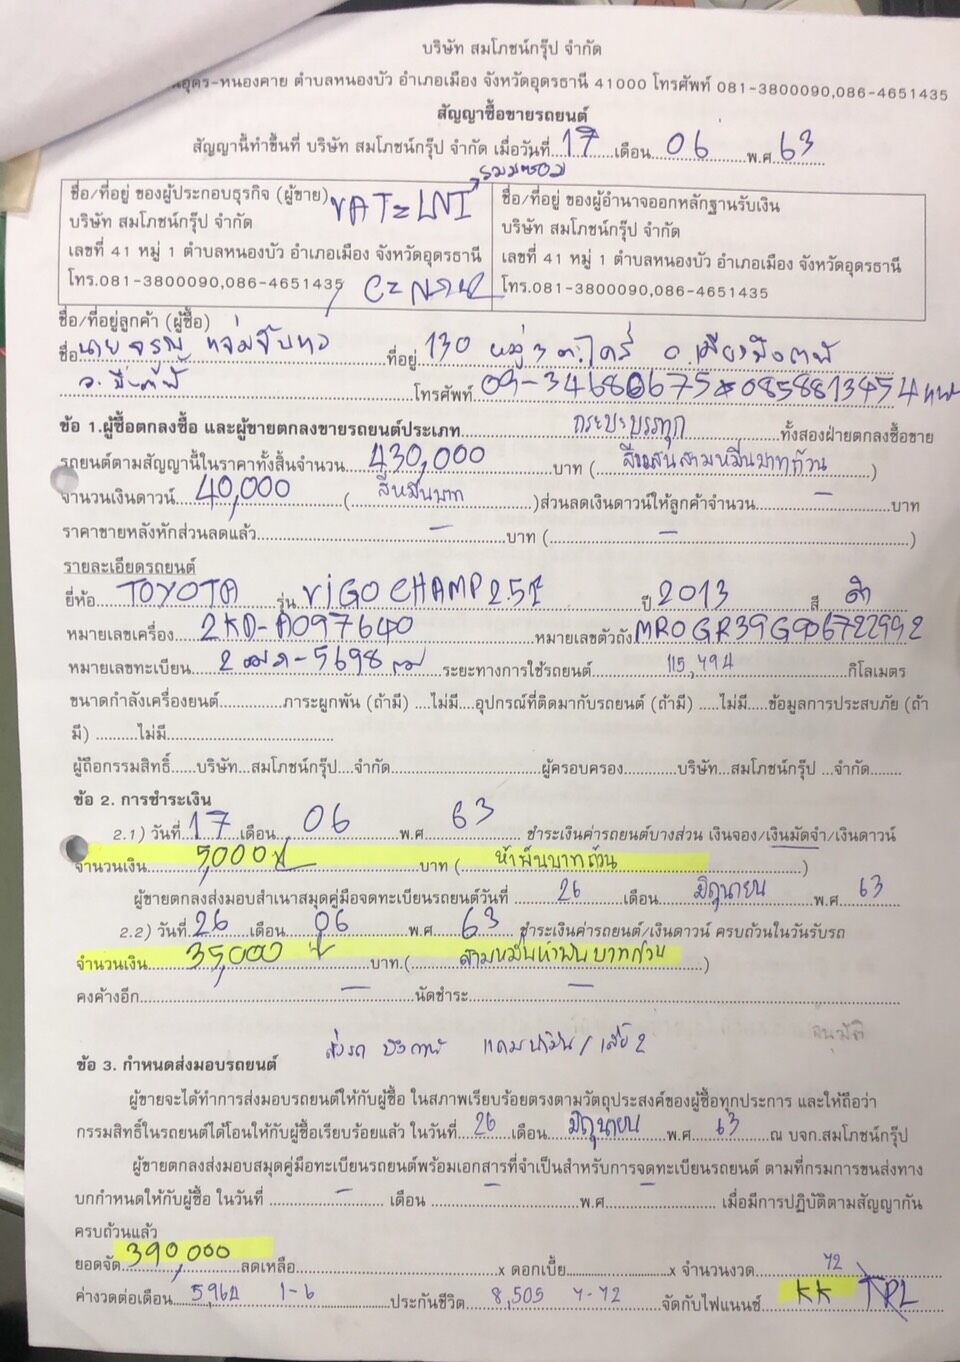 บริษัท สมโภชน์กรุ๊ป จำกัด
อุดร-หนองคาย ตำบลหนองบัว อำเภอเมือง จังหวัดอุดรธานี 41000 โทรศัพท์ 081-3800090,086-4651435
สัญญาซื้อขายรถยนต์
สัญญานี้ทำขึ้นที่ บริษัท สมโภชน์กรุ๊ป จำกัด เมื่อวันที่ 17 เดือน 06 พ.ศ 63
ชื่อ/ที่อยู่ ของผู้ประกอบธุรกิจ (ผู้ขาย)
บริษัท สมโภชน์กรุ๊ป จำกัด
เลขที่ 41 หมู่ 1 ตำบลหนองบัว อำเภอเมือง จังหวัดอุดรธานี
โทร.081-3800090,086-4651435
ชื่อ/ที่อยู่ ของผู้อำนาจออกหลักฐานรับเงิน
บริษัท สมโภชน์กรุ๊ป จำกัด
เลขที่ 41 หมู่ 1 ตำบลหนองบัว อำเภอเมือง จังหวัดอุดรธานี
โทร.081-3800090,086-4651435
ชื่อ/ที่อยู่ลูกค้า (ผู้ซื้อ)
ชื่อ นาย ที่อยู่ 130 หมู่ 3
โทรศัพท์
ข้อ 1.ผู้ซื้อตกลงซื้อ และผู้ขายตกลงขายรถยนต์ประเภท กระบะบรรทุก ทั้งสองฝ่ายตกลงซื้อขาย
รถยนต์ตามสัญญานี้ในราคาทั้งสิ้นจำนวน 430,000 บาท ( สี่แสนสามหมื่นบาทถ้วน )
จำนวนเงินดาวน์ 40,000 ( สี่หมื่นบาท )ส่วนลดเงินดาวน์ให้ลูกค้าจำนวน - บาท
ราคาขายหลังหักส่วนลดแล้ว - บาท ( - )
รายละเอียดรถยนต์
ยี่ห้อ TOYOTA รุ่น VIGO CHAMP 2.5E ปี 2013 สี ดำ
หมายเลขเครื่อง 2KD-A097640 หมายเลขตัวถัง MR0GR39G906722992
หมายเลขทะเบียน 5698 ระยะทางการใช้รถยนต์ 115,494 กิโลเมตร
ขนาดกำลังเครื่องยนต์ ภาระผูกพัน (ถ้ามี) ...ไม่มี....อุปกรณ์ที่ติดมากับรถยนต์ (ถ้ามี) .....ไม่มี.....ข้อมูลการประสบภัย (ถ้า
มี) ..........ไม่มี
ผู้ถือกรรมสิทธิ์......บริษัท...สมโภชน์กรุ๊ป....จำกัด ผู้ครอบครอง บริษัท...สมโภชน์กรุ๊ป ...จำกัด
ข้อ 2. การชำระเงิน
2.1) วันที่ 17 เดือน 06 พ.ศ 63 ชำระเงินค่ารถยนต์บางส่วน เงินจอง/เงินมัดจำ/เงินดาวน์
จำนวนเงิน 5,000 บาท ( ห้าพันบาทถ้วน )
ผู้ขายตกลงส่งมอบสำเนาสมุดคู่มือจดทะเบียนรถยนต์วันที่ 26 เดือน มิถุนายน พ.ศ 63
2.2) วันที่ 26 เดือน 06 พ.ศ 63 ชำระเงินค่ารถยนต์/เงินดาวน์ ครบถ้วนในวันรับรถ
จำนวนเงิน 35,000 บาท.( สามหมื่นห้าพันบาทถ้วน )
คงค้างอีก - นัดชำระ -
อนุมัติ
ข้อ 3. กำหนดส่งมอบรถยนต์
ผู้ขายจะได้ทำการส่งมอบรถยนต์ให้กับผู้ซื้อ ในสภาพเรียบร้อยตรงตามวัตถุประสงค์ของผู้ซื้อทุกประการ และให้ถือว่า
กรรมสิทธิ์ในรถยนต์ได้โอนให้กับผู้ซื้อเรียบร้อยแล้ว ในวันที่ 26 เดือน มิถุนายน พ.ศ 63 ณ บจก.สมโภชน์กรุ๊ป
ผู้ขายตกลงส่งมอบสมุดคู่มือทะเบียนรถยนต์พร้อมเอกสารที่จำเป็นสำหรับการจดทะเบียนรถยนต์ ตามที่กรมการขนส่งทาง
บกกำหนดให้กับผู้ซื้อ ในวันที่ - เดือน - พ.ศ - เมื่อมีการปฏิบัติตามสัญญากัน
ครบถ้วนแล้ว
ยอดจัด 390,000 ลดเหลือ x ดอกเบี้ย x จำนวนงวด 72
ค่างวดต่อเดือน 5,964 1-6 ประกันชีวิต 8,505 7-72 จัดกับไฟแนนซ์ KK